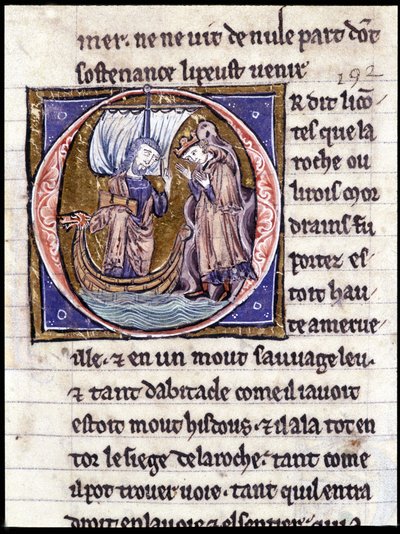 mer. ne ne uit de nule part dōt
sostenance li peust uenir
192
OR dit li cō
tes que la
roche ou
li rois mor
drains fu
portez es
toit hau
te a merue
ille. ⁊ en un mout sauuage leu.
⁊ tant dabitacle come il i auoit
estoit mout hisdous. ⁊ il ala tot en
tor le siege de la roche. tant come
il pot trouer uoie. tant quil entra
droit en la uoie ⁊ el sentier